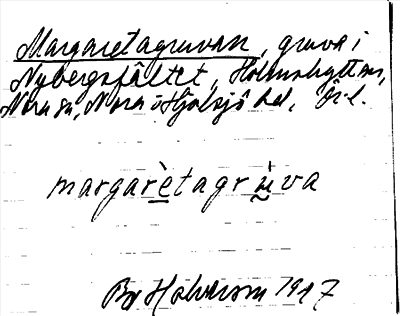 Margaretagruvan, gruva i
Nybergsfältet, Holmshyttan,
Nora sn, Nora o Hjulsjö bd, Ör. l.
margarètagru̇va
Bo Halvarson 1947